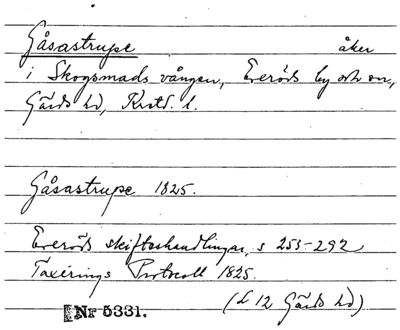 Gåsastrupe åker
i Skogsmads vången, Everöds by och sn,
Gärds hd, Krstd. l.
Gåsastrupe 1825.
Everöds skifteshandlingar, s 253-292
Taxerings Protocoll 1825.
(L 12 Gärds hd)
Nr 5331.